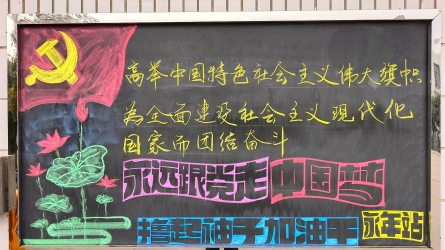 高举中国特色社会主义伟大旗帜
为全面建设社会主义现代化
国家而团结奋斗
永远跟党走 中国梦
撸起袖子加油干 永年站